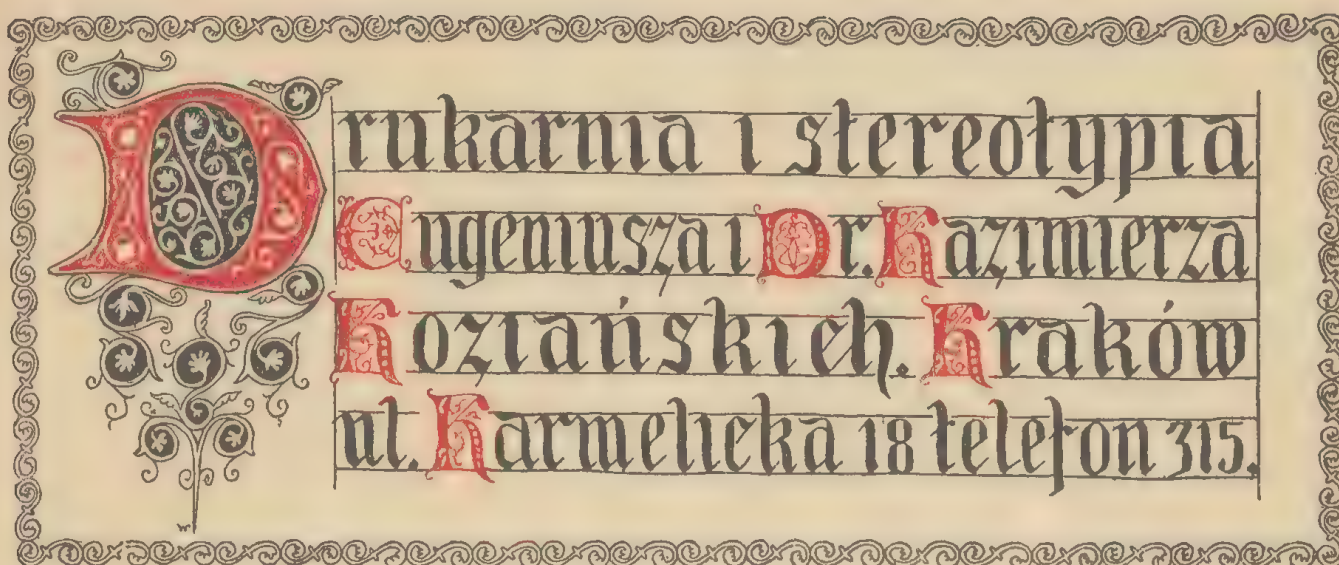 Drukarnia i stereotypia
Eugeniusza i Dr. Kazimierza
Koziańskich. Kraków
ul. Karmelicka 18 telefon 315.
w